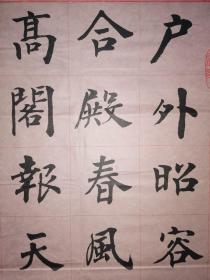 户外昭容
合殿春風
高閣報天